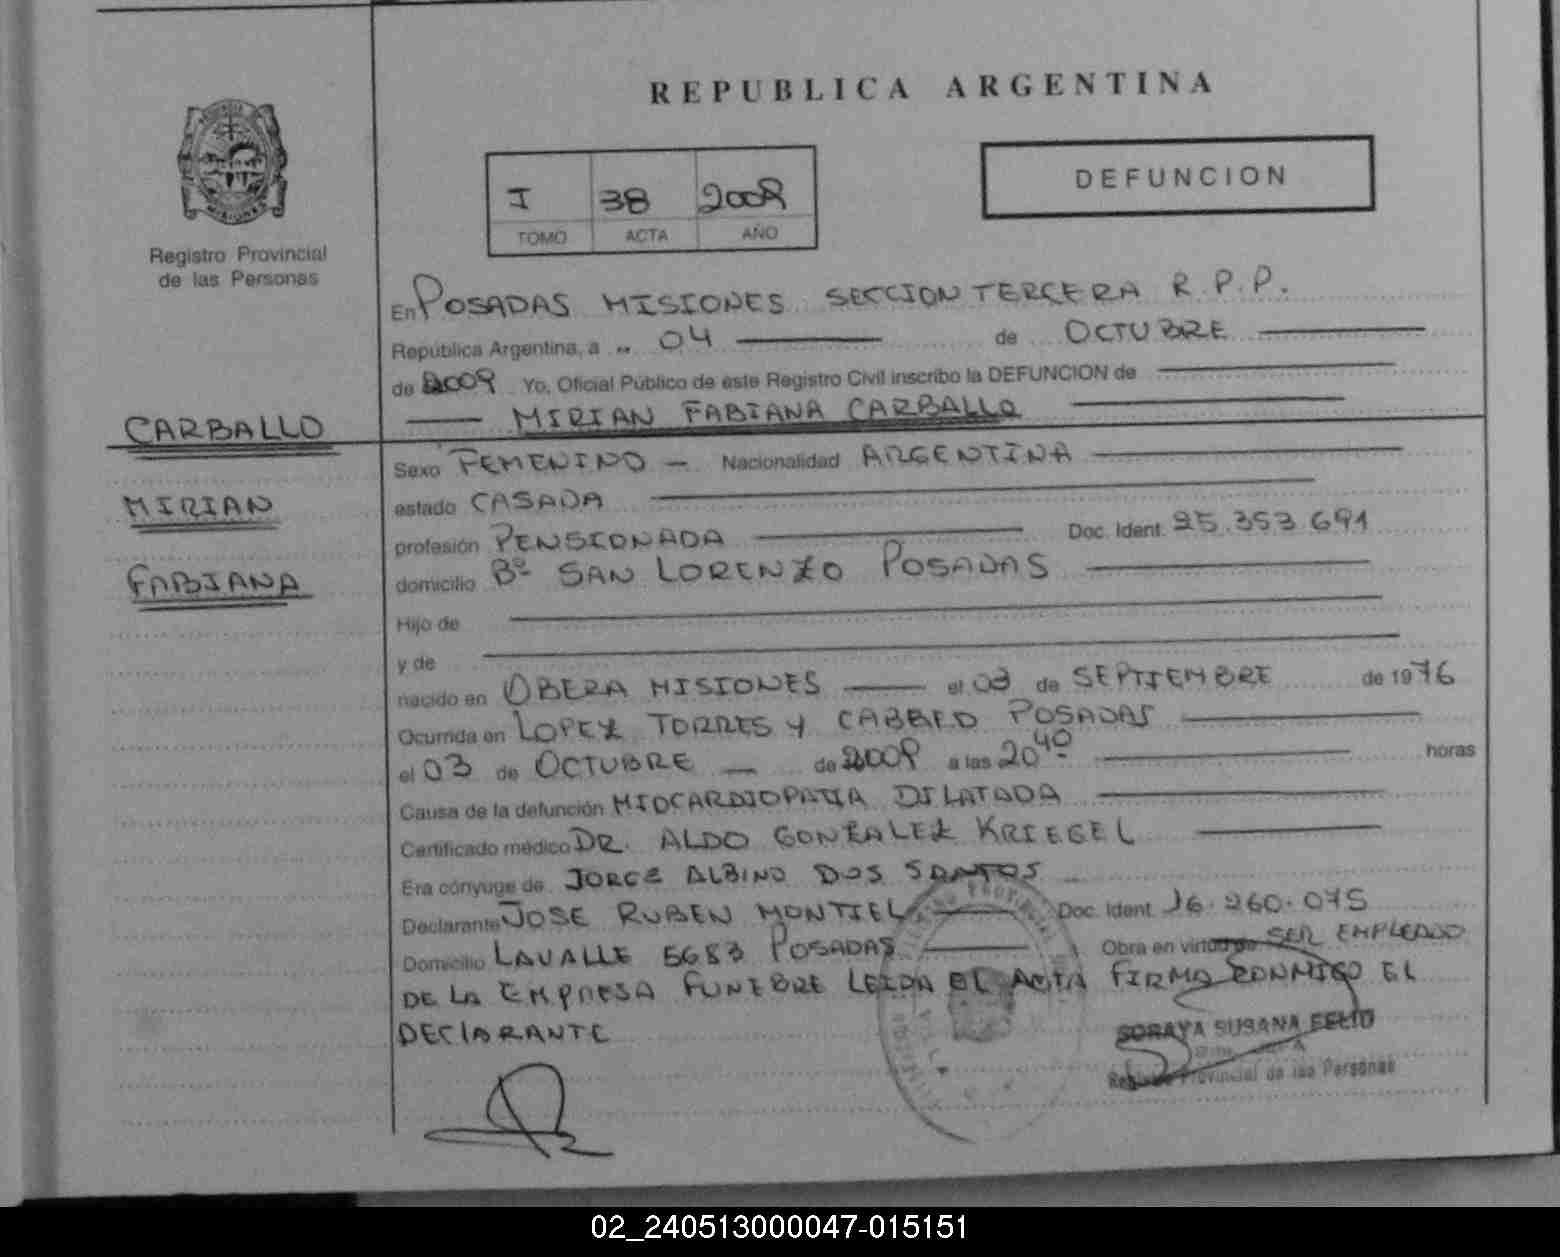 REPUBLICA ARGENTINA
DEFUNCION
I 38 2009
TOMO ACTA AÑO
Registro Provincial
de las Personas
En POSADAS MISIONES SECCION TERCERA R.P.P.
República Argentina, a 04 de OCTUBRE
de 2009 Yo, Oficial Público de este Registro Civil inscribo la DEFUNCION de
MIRIAN FABIANA CARBALLO
CARBALLO
MIRIAN
FABIANA
Sexo FEMENINO - Nacionalidad ARGENTINA
estado CASADA
profesión PENSIONADA Doc. Ident. 25.353.691
domicilio Bº SAN LORENZO POSADAS
Hijo de
y de
nacido en OBERA MISIONES el 03 de SEPTIEMBRE de 1976
Ocurrida en LOPEZ TORRES Y CABRED POSADAS
el 03 de OCTUBRE de 2009 a las 20 40 horas
Causa de la defunción MIOCARDIOPATIA DILATADA
Certificado médico DR. ALDO GONZALEZ KRIEGEL
Era cónyuge de JORGE ALBINO DOS SANTOS
Declarante JOSE RUBEN MONTIEL Doc. Ident. 16.260.075
Domicilio LAVALLE 5683 POSADAS Obra en virtud de SER EMPLEADO
DE LA EMPRESA FUNEBRE LEIDA EL ACTA FIRMA CONMIGO EL
DECLARANTE
SORAYA SUSANA FELIU
Registro Provincial de las Personas
02_240513000047-015151